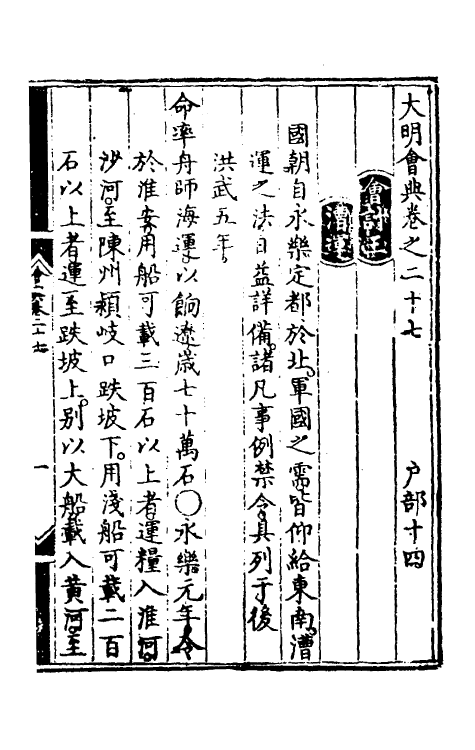 大明會典卷之二十七 戶部十四
會計三
漕運
國朝自永樂定都於北。軍國之需皆仰給東南。漕
運之法日益詳備。諸凡事例禁令具列于後
洪武五年。
命率舟師海運。以餉遼。歲七十萬石〇永樂元年。令
於淮安用船可載三百石以上者運糧入淮河。
沙河。至陳州潁岐口跌坡下。用淺船可載二百
石以上者運至跌坡上。別以大船載入黃河。至
會典卷二十七
一